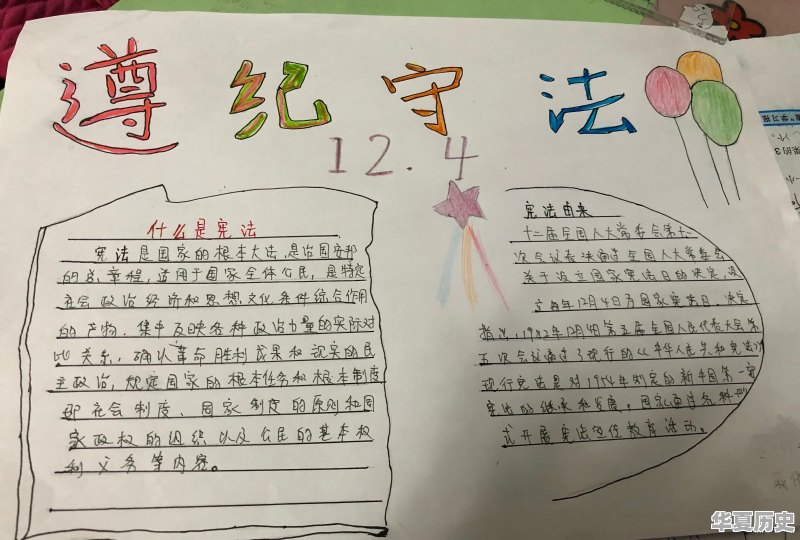 遵纪守法
12.4
什么是宪法
宪法是国家的根本大法,是治国安邦
的总章程,适用于国家全体公民,是特定
社会政治经济和思想文化条件综合作用
的产物,集中反映各种政治力量的实际对
比关系,确认革命胜利成果和现实的民
主政治,规定国家的根本任务和根本制度
即社会制度、国家制度的原则和国
家政权的组织以及公民的基本权
利义务等内容。
宪法由来
十二届全国人大常委会第十一
次会议表决通过全国人大常委会
关于设立国家宪法日的决定,
每年12月4日为国家宪法日。决定
指出,1982年12月4日第五届全国人民代表大会第
五次会议通过了现行的《中华人民共和国宪法》
现行宪法是对1954年制定的新中国第一部
宪法的继承和发展。国家通过各种形
式开展宪法宣传教育活动。
华夏历史